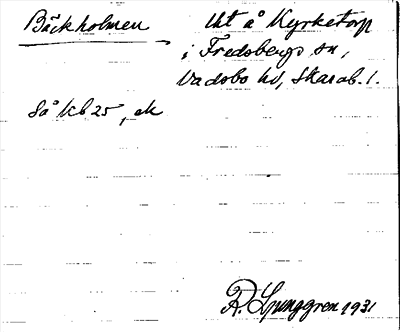 Bäckholmen
Ut å Kyrketorp
i Fredsbergs sn,
Vadsbo hd, Skarab. l.
Så kb 25, ek
R. Ljunggren 1931